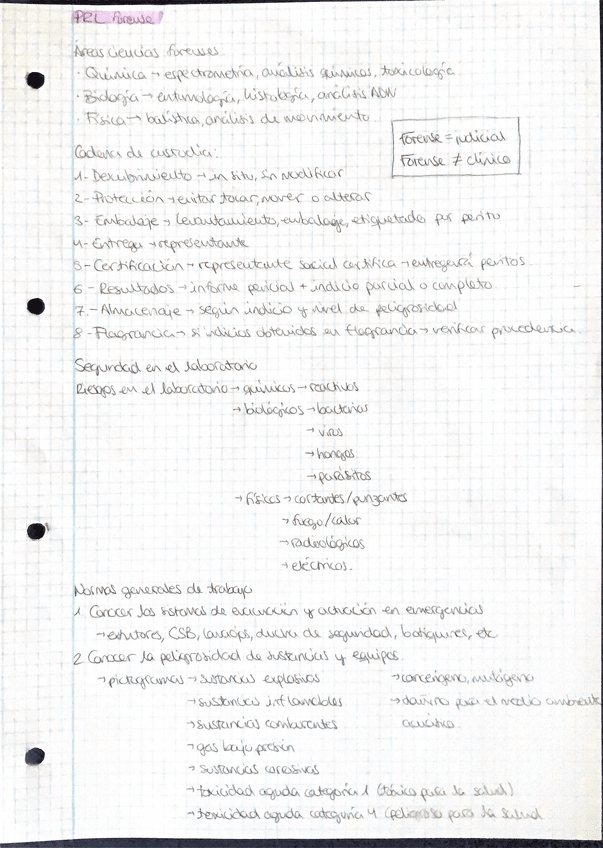 PRL Forense
Áreas ciencias forenses
· Química → espectrometría, análisis químicos, toxicología
· Biología → entomología, histología, análisis ADN
· Física → balística, análisis de movimiento
Forense = judicial
Forense ≠ clínico
Cadena de custodia:
1- Descubrimiento → in situ, sin modificar
2- Protección → evitar tocar, mover o alterar
3- Embalaje → levantamiento, embalaje, etiquetado por perito
4- Entrega → representante
5- Certificación → representante social certifica → entregará peritos
6- Resultados → informe pericial + indicio parcial o completo
7- Almacenaje → según indicio y nivel de peligrosidad
8- Flagrancia → si indicios obtenidos en flagrancia → verificar procedencia
Seguridad en el laboratorio
Riesgos en el laboratorio → químicos → reactivos
→ biológicos → bacterias
→ virus
→ hongos
→ parásitos
→ físicos → cortantes/punzantes
→ fuego/calor
→ radiológicos
→ eléctricos.
Normas generales de trabajo
1 Conocer los sistemas de evacuación y actuación en emergencias
→ extintores, CSB, lavaojos, ducha de seguridad, botiquines, etc
2 Conocer la peligrosidad de sustancias y equipos
→ pictogramas → sustancias explosivas → cancerígeno, mutágeno
→ sustancias inflamables → dañino para el medio ambiente
→ sustancias comburentes acuático
→ gas bajo presión
→ sustancias corrosivas
→ toxicidad aguda categoría 1 (tóxico para la salud)
→ toxicidad aguda categoría 4 (peligroso para la salud